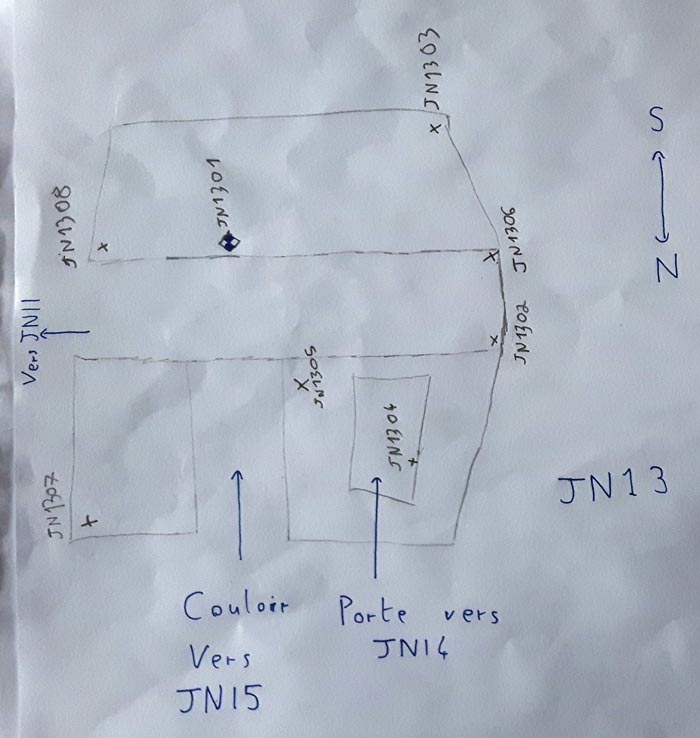 JN1303
S
JN1301
JN1308
JN1306
N
Vers JN11
JN1302
JN1305
JN1304
JN13
JN1307
Couloir
Vers
JN15
Porte vers
JN14